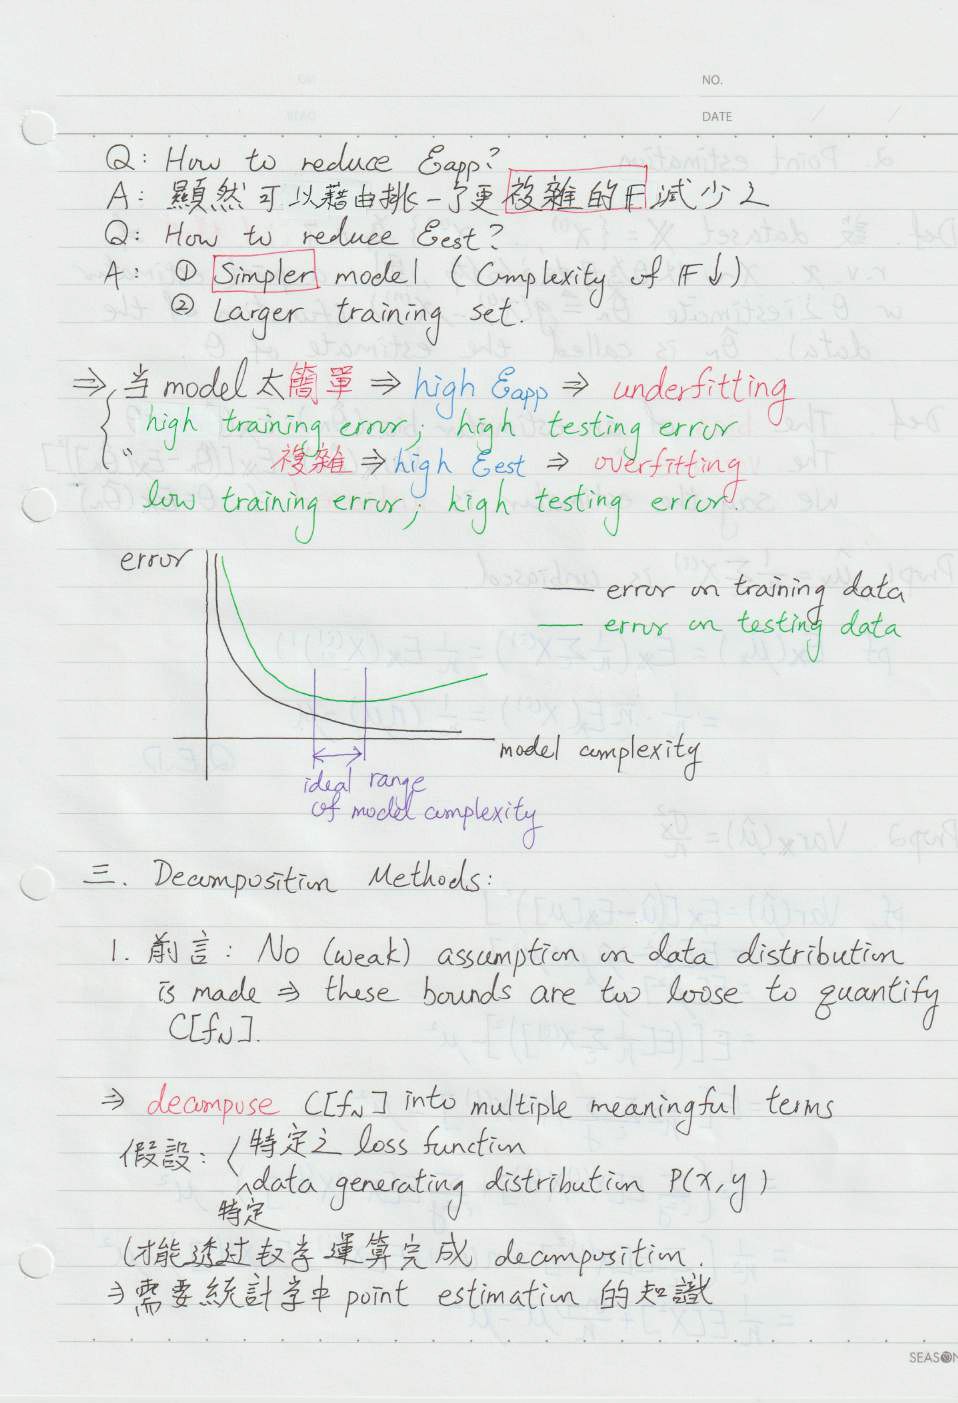 NO.
DATE
Q: How to reduce Eapp?
A: 顯然可以藉由挑一个更複雜的𝔽減少之
Q: How to reduce Eest?
A: ① Simpler model (Complexity of 𝔽↓)
② Larger training set.
⇒ 当 model 太簡單 ⇒ high Eapp ⇒ underfitting
high training error; high testing error
〃 複雜 ⇒ high Eest ⇒ overfitting
low training error; high testing error.
error
error on training data
error on testing data
model complexity
ideal range
of model complexity
三. Decomposition Methods:
1. 前言: No (weak) assumption on data distribution
is made ⇒ these bounds are too loose to quantify
C[fN].
⇒ decompose C[fN] into multiple meaningful terms
假設: 特定之 loss function
特定 data generating distribution P(x,y)
(才能透过数学運算完成 decomposition.
⇒ 需要統計学中 point estimation 的知識
SEASON